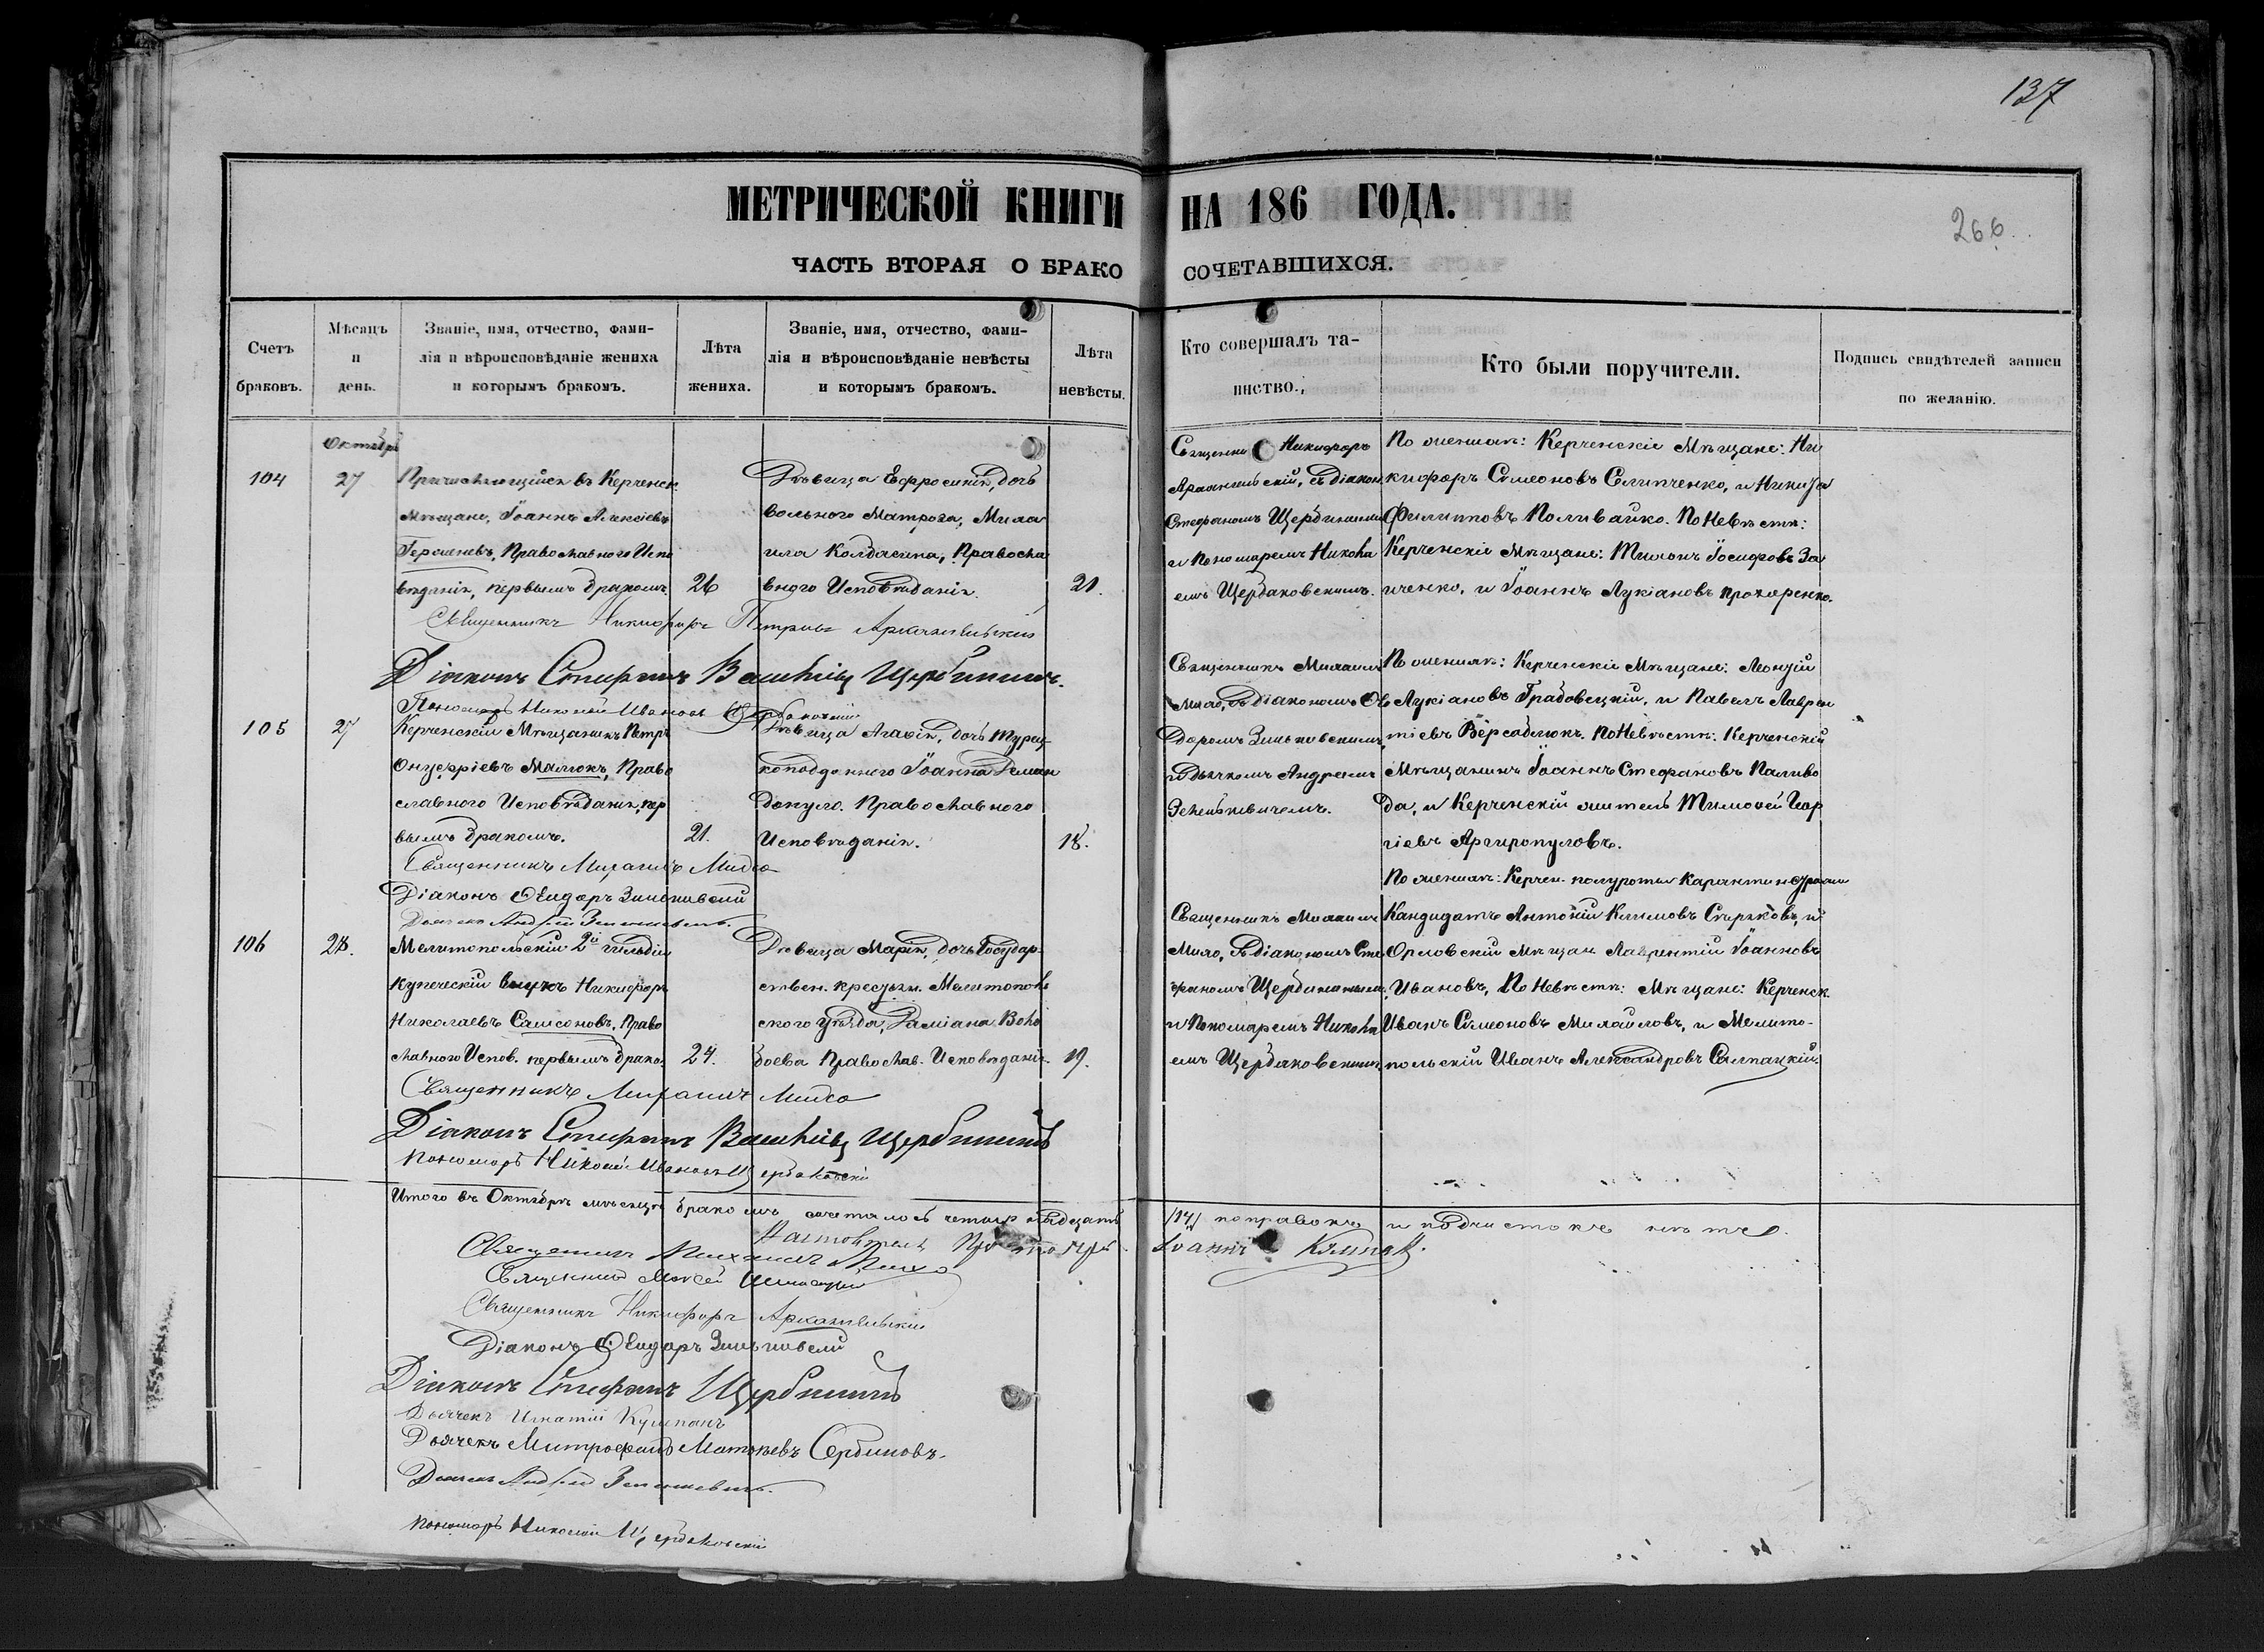 137
МЕТРИЧЕСКОЙ КНИГИ НА 186 ГОДА.
266
ЧАСТЬ ВТОРАЯ О БРАКОСОЧЕТАВШИХСЯ.
Счетъ
браковъ.
Мѣсяцъ
и
день.
Званіе, имя, отчество, фами-
лія и вѣроисповѣданіе жениха
и которымъ бракомъ.
Лѣта
жениха.
Званіе, имя, отчество, фами-
лія и вѣроисповѣданіе невѣсты
и которымъ бракомъ.
Лѣта
невѣсты.
Кто совершалъ та-
инство.
Кто были поручители.
Подпись свидѣтелей записи
по желанію.
Октябрь
104
27
Причисляющійся въ Керченск.
мѣщане, Іоаннъ Алексіевъ
Православнаго Испо
вѣданія, первымъ бракомъ
26
Дѣвица Евфросинія, дочь
вольнаго матроза, Миха
ила Колдасина, Правосла
внаго Исповѣданія.
21.
Священникъ Никифоръ
Архангельскій, съ діакон.
Стефаномъ Щербининымъ
и Пономаремъ Никола
емъ Щербаковскимъ.
По женихѣ: Керченскіе Мѣщане: Ни
кифоръ Симеоновъ Слипченко, и Никита
Филипповъ Поливайко. По Невѣстѣ:
Керченскіе Мѣщане: Тихонъ Іосифовъ За
иченко, и Іоаннъ Лукіановъ Прохоренко.
Священникъ Никифоръ Петровъ Архангельскій
Діаконъ Стефанъ Щербининъ.
Пономарь Николай Ивановъ Щербаковскій
105
27
Керченскій Мѣщанинъ Петръ
Онуфріевъ Малюкъ, Право
славнаго Исповѣданія, пер
вымъ бракомъ.
21.
Дѣвица Агафія, дочь Турец-
коподданнаго Іоанна
Православнаго
Исповѣданія.
18.
Священникъ Михаилъ
Михо, съ діакономъ Ѳе
доромъ Зиньковскимъ
и дьячкомъ Андреемъ
Зеленкевичемъ.
По женихѣ: Керченскіе Мѣщане: Леонтій
Лукіановъ Грабовецкій, и Павелъ Лаврен
тіевъ По Невѣстѣ: Керченскій
Мѣщанинъ Іоаннъ Стефановъ Паливо
да, и Керченскій житель Тимоѳей Геор
гіевъ Аргиропуловъ.
Священникъ Михаилъ Михо
Діаконъ Ѳеодоръ Зиньковскій
Дьячекъ Андрей Зеленкевичъ.
106
28.
Мелитопольскій 2й гильдіи
купеческій внукъ Никифоръ
Николаевъ Самсоновъ, Право
славнаго Испов. первымъ брако.
24.
Дѣвица Марія, дочь Государ-
ствен. крестьян. Мелитополь
скаго Уѣзда, Даміана Воло
боева Православ. Исповѣданія.
19.
Священникъ Михаилъ
Михо, съ діакономъ Сте
фаномъ Щербининымъ,
и Пономаремъ Никола
емъ Щербаковскимъ
По женихѣ: Керчен. полуроты карантин. стражи
Кандидатъ Антоній Климовъ и
Орловскій мѣщан. Лаврентій Іоанновъ
Ивановъ, По Невѣстѣ: Мѣщане: Керченск.
Иванъ Симеоновъ Михайловъ, и Мелито-
польскій Иванъ Александровъ
Священникъ Михаилъ Михо
Діаконъ Стефанъ Щербининъ
Пономарь Николай Ивановъ Щербаковскій
Итого въ Октябрѣ мѣсяцѣ бракомъ сочеталось четырнадцать /14/ поправокъ и подчистокъ нѣтъ.
Настоятель Протоіерей Іоаннъ
Священникъ Михаилъ Михо
Священникъ
Священникъ Никифоръ Архангельскій
Діаконъ Ѳеодоръ Зиньковскій
Діаконъ Стефанъ Щербининъ
Дьячекъ Игнатій
Дьячекъ Митрофанъ Матвѣевъ Сербиновъ.
Дьячекъ Андрей Зеленкевичъ.
Пономарь Николай Щербаковскій